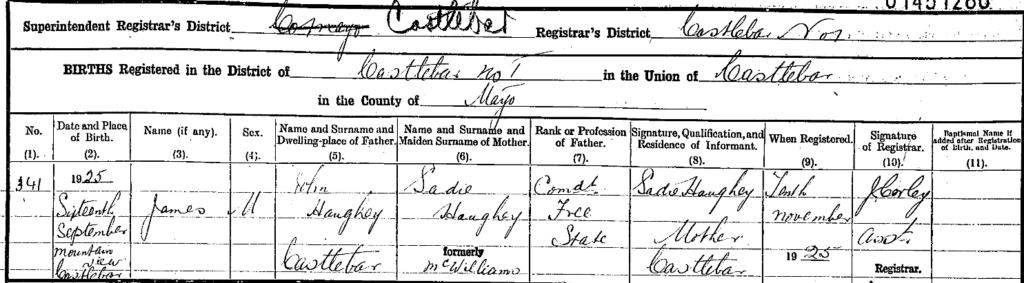 01451280
Superintendent Registrar's District Co mayo Castlebar Registrar's District Castlebar No 1
BIRTHS Registered in the District of Castlebar no 1 in the Union of Castlebar
in the County of Mayo
No. Date and Place of Birth. Name (if any). Sex. Name and Surname and Dwelling-place of Father. Name and Surname and Maiden Surname of Mother. Rank or Profession of Father. Signature, Qualification, and Residence of Informant. When Registered. Signature of Registrar. Baptismal Name if added after Registration of Birth, and Date.
(1). (2). (3). (4). (5). (6). (7). (8). (9). (10). (11).
341 1925 John Sadie Comdt. Sadie Haughey Tenth J Corley
Sixteenth James M Haughey Haughey Free november
September State Mother asst.
mountain view Castlebar formerly Castlebar 1925
Castlebar mcWilliams Registrar.